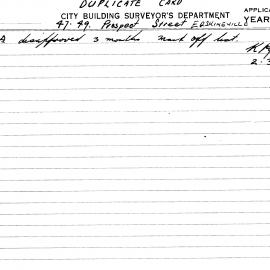 DUPLICATE CARD
CITY BUILDING SURVEYOR'S DEPARTMENT
APPLICA
YEAR
47-49 Prospect Street ERSKINEVILLE
A disapproved 3 months mark off list.
2.3